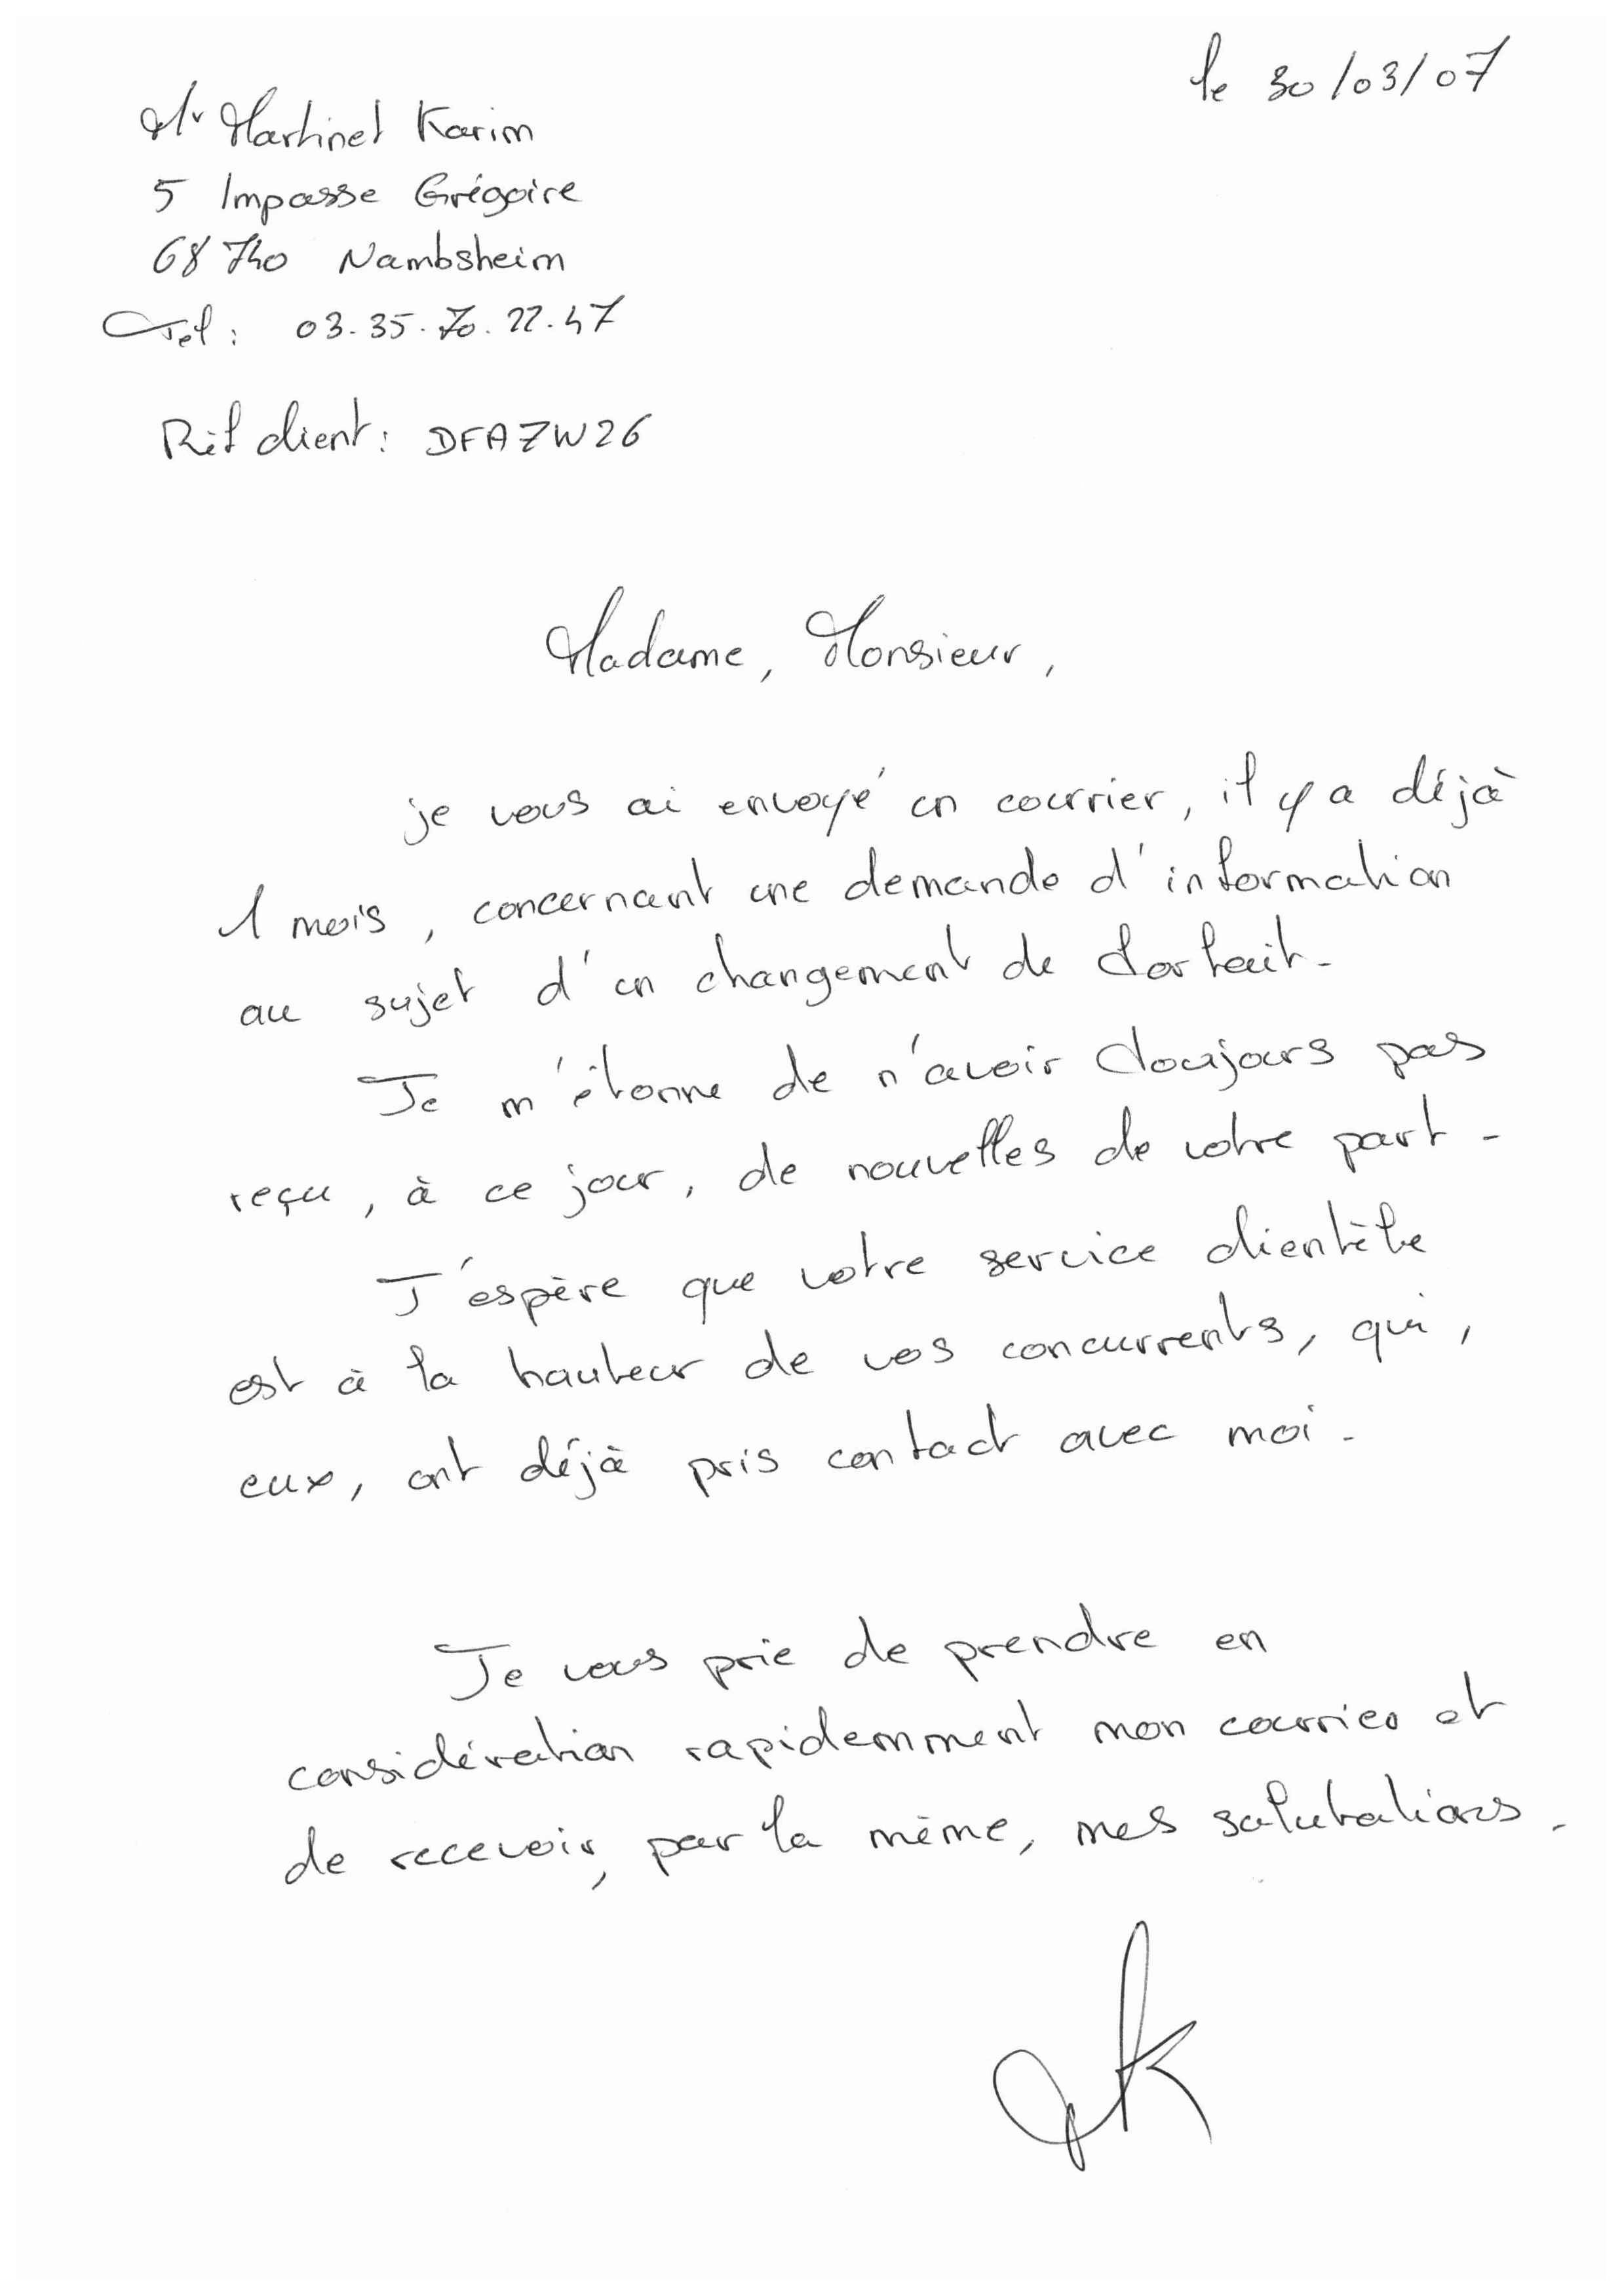 le 30/03/07
Mr Martinet Karim
5 Impasse Grégoire
68740 Nambsheim
Tel : 03.35.70.22.47
Réf client : DFAZW26
Madame, Monsieur,
je vous ai envoyé un courrier, il y a déjà
1 mois, concernant une demande d'information
au sujet d'un changement de forfait.
Je m'étonne de n'avoir toujours pas
reçu, à ce jour, de nouvelles de votre part.
J'espère que votre service clientèle
est à la hauteur de vos concurrents, qui,
eux, ont déjà pris contact avec moi.
Je vous prie de prendre en
considération rapidemment mon courrier et
de recevoir, par la même, mes salutations.